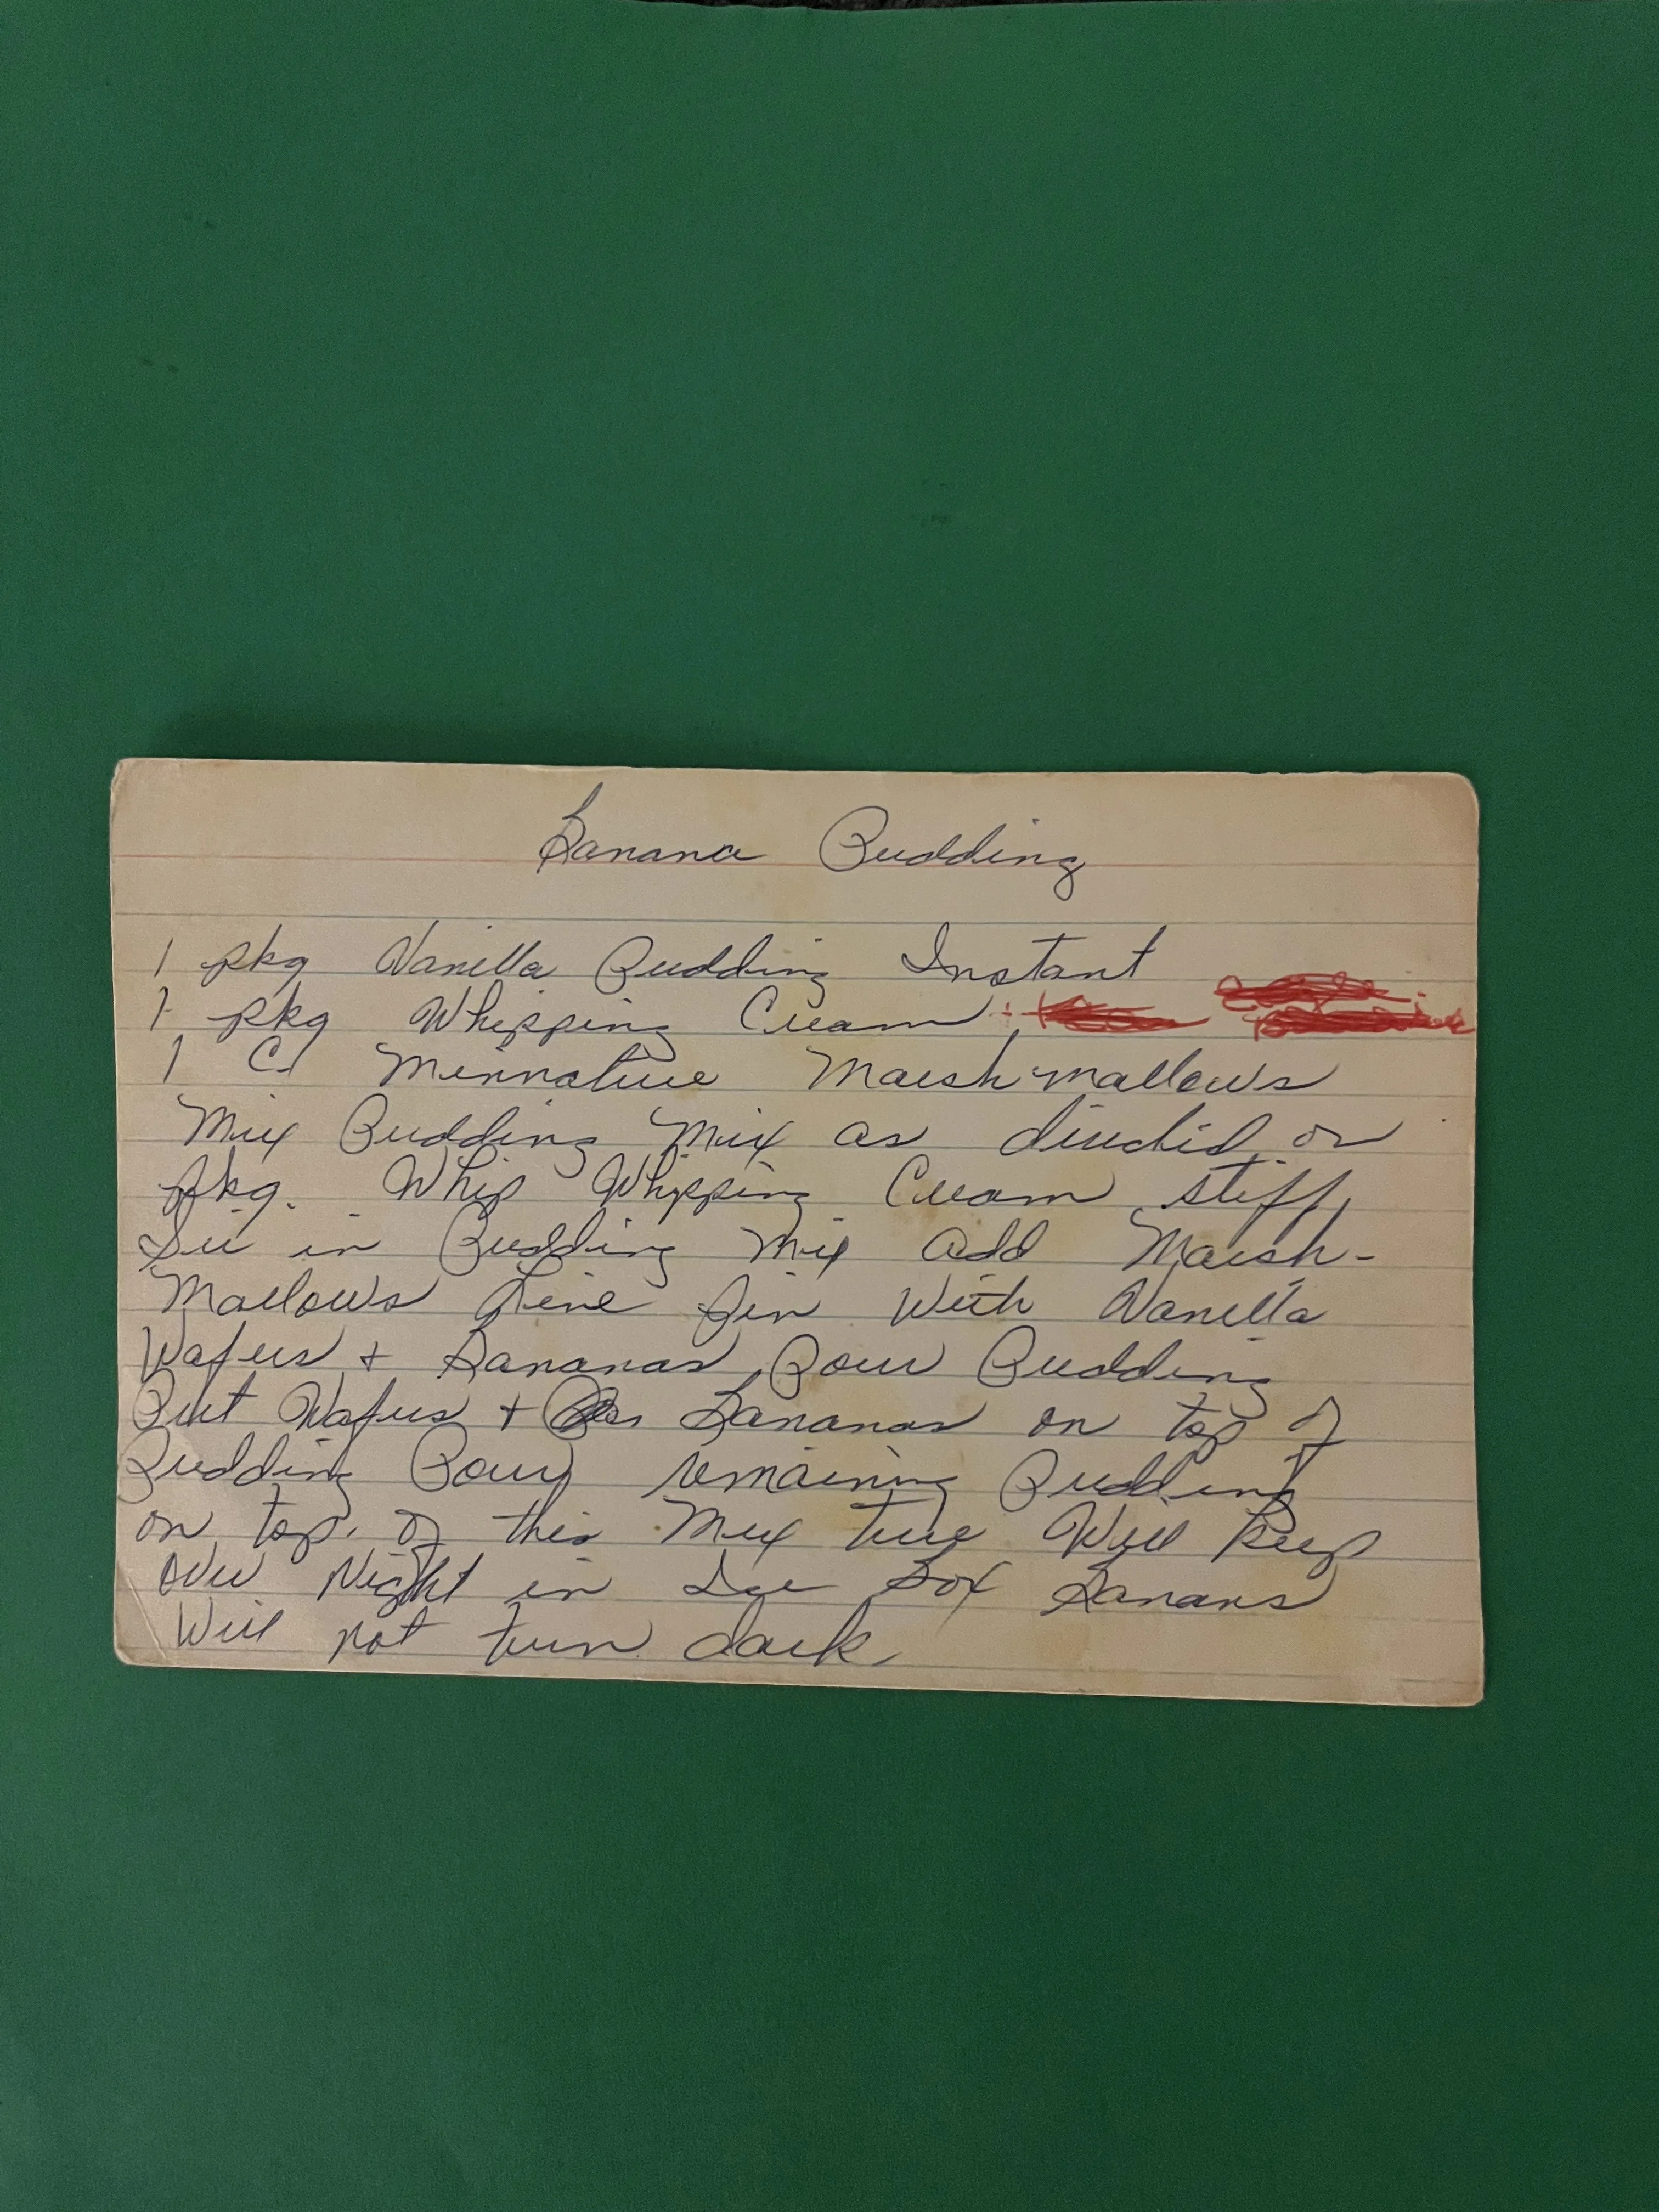 Banana Pudding
1 pkg Vanilla Pudding Instant
1 pkg Whipping Cream
1 C Minnature Marsh mallows
Mix Pudding Mix as directed on
pkg. Whip Whipping Cream stiff,
in Pudding Mix Add Marsh-
Mallows Line Pin With Vanilla
Wafers + Bananas Pour Pudding
Put Wafers + Bananas on top of
Pudding Pour remaining Pudding
on top. of this Mix Will Keep
over Night in Ice Box Banans
Will not turn dark